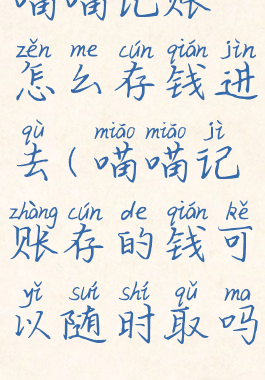 喵喵记账
zěn me cún qián jìn
怎么存钱进
qù miāo miāo jì
去(喵喵记
zhàng cún de qián kě
账存的钱可
yǐ suí shí qǔ ma
以随时取吗